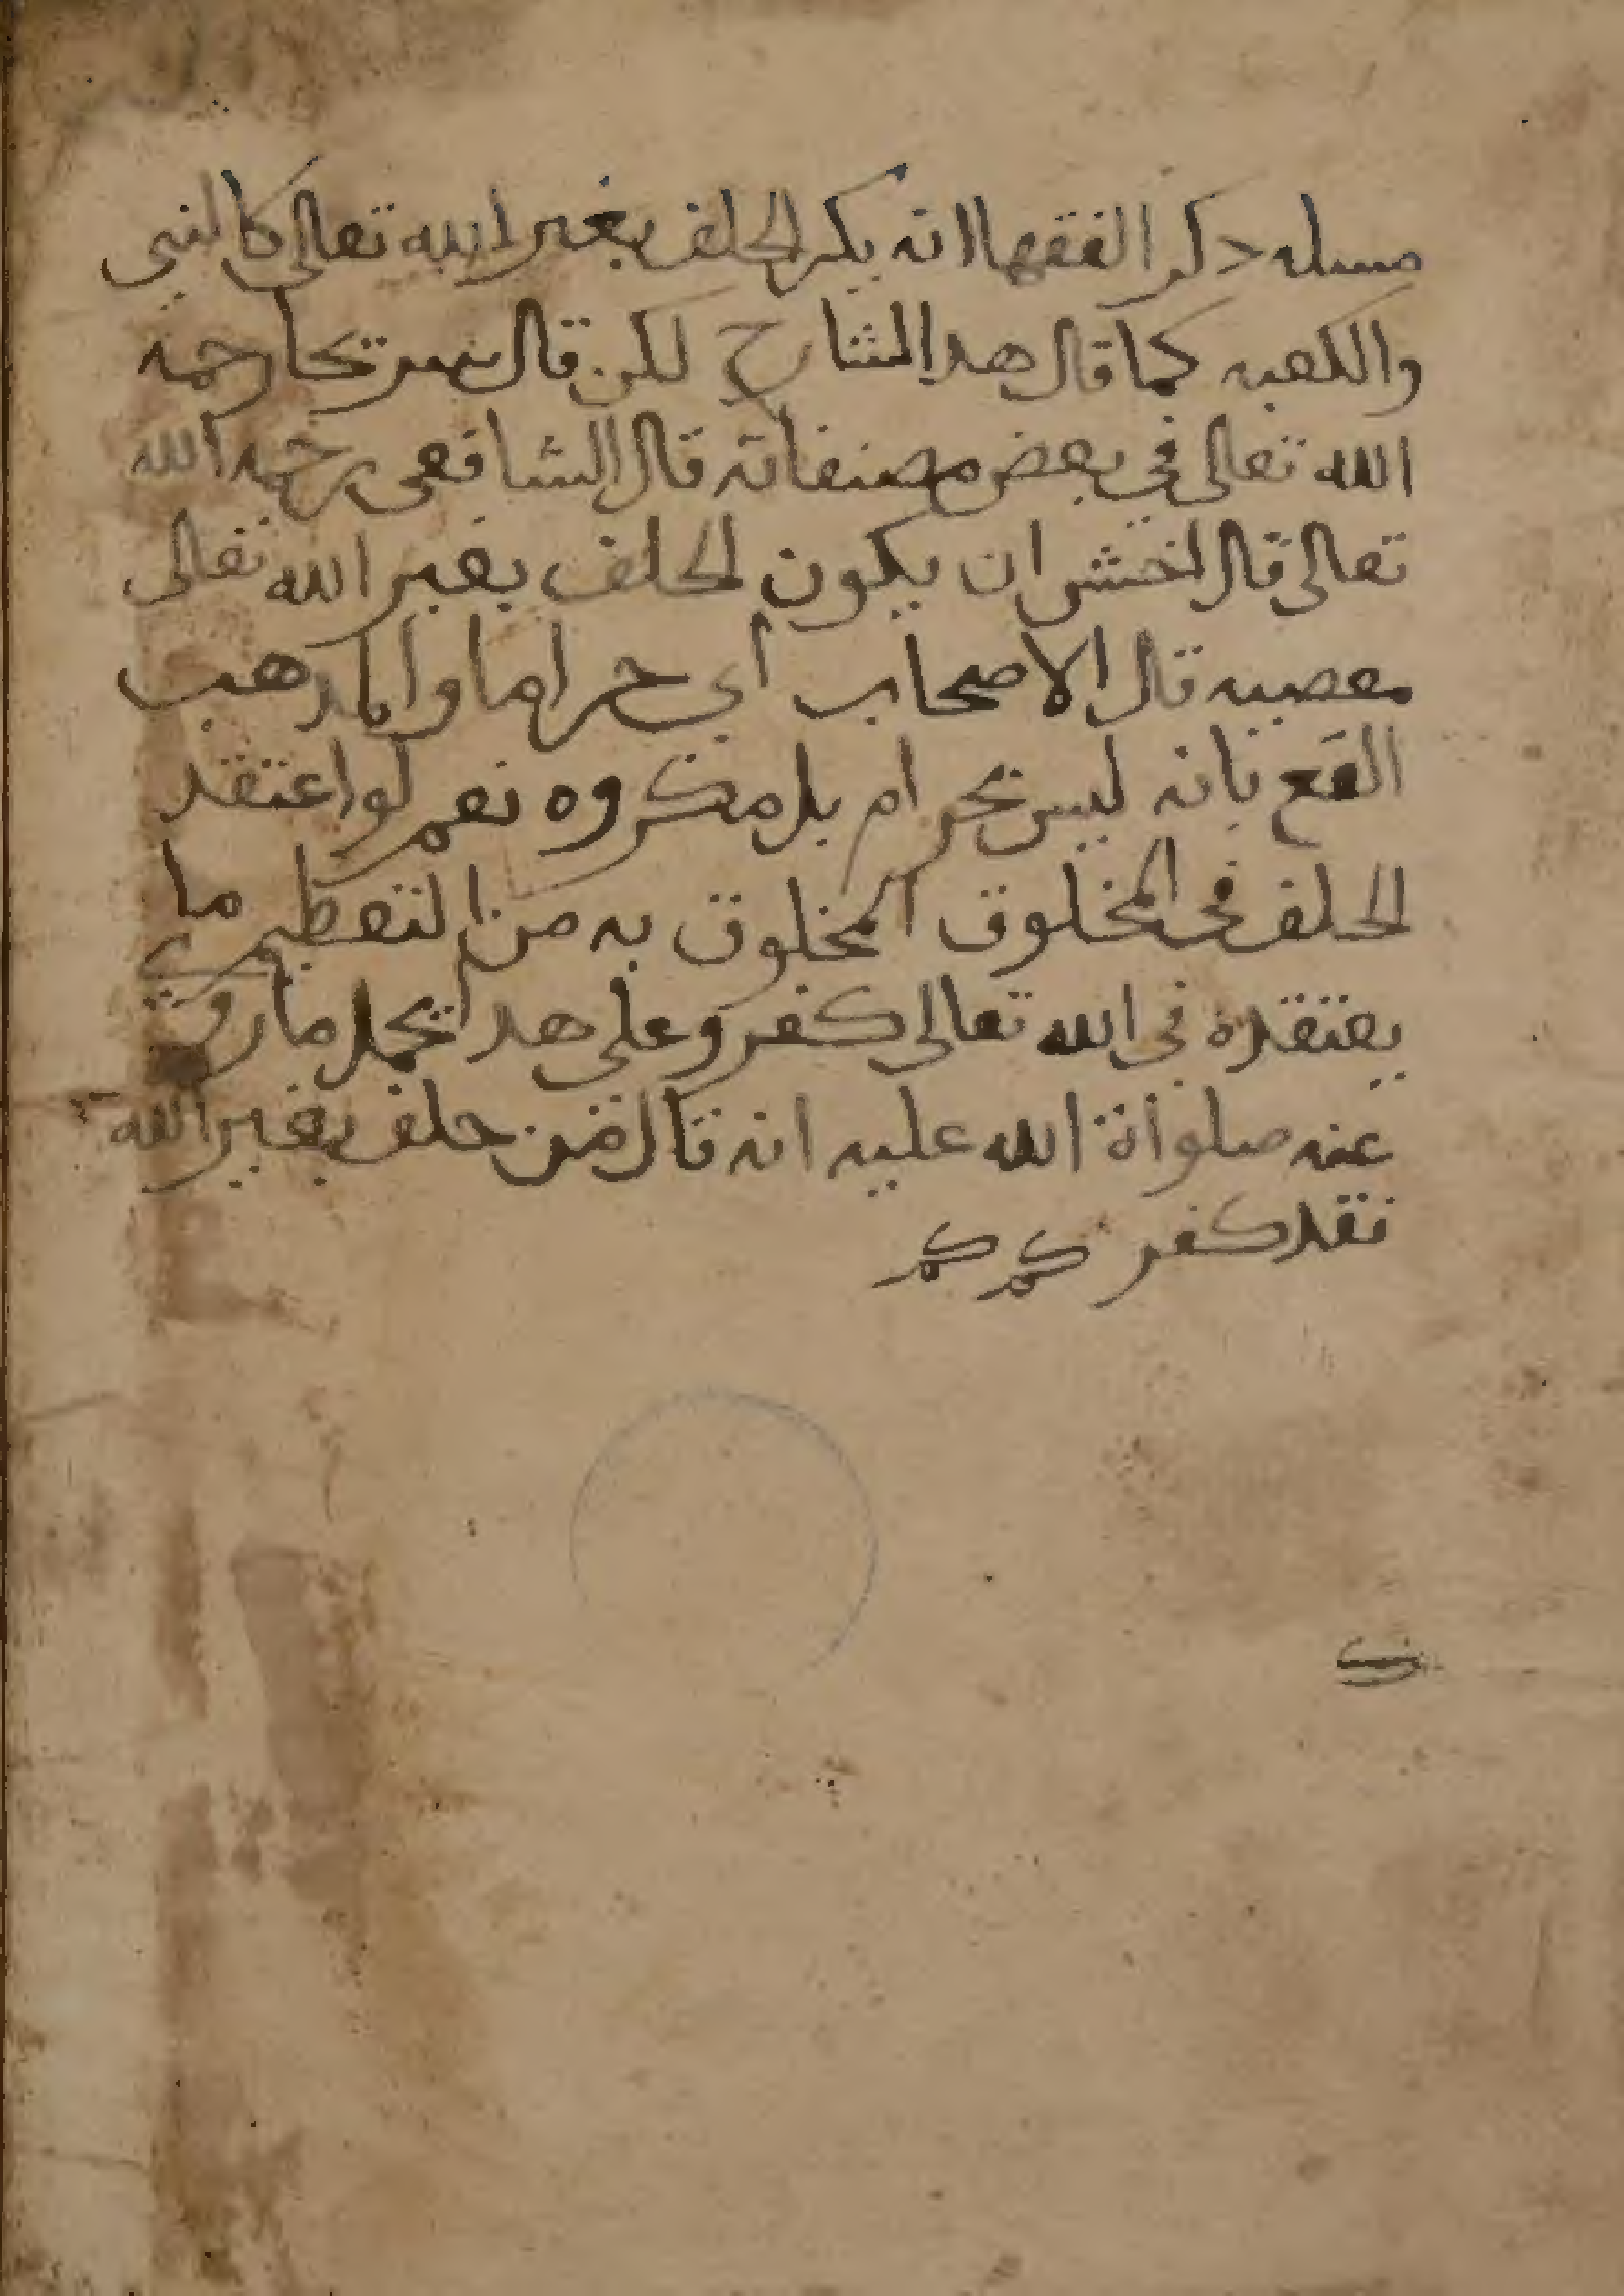 مسله دكر الفقها انه يكر الحلف بغير الله تعالى كالنبي
والكعبه كما قال هدا الشارح لكن قال رحمه
الله تعالى في بعض مصنفاته قال الشافعى رحمه الله
تعالى قال اخشى ان يكون الحلف بغير الله تعالى
معصيه قال الاصحاب اي حراما والمدهب
القطع بانه ليس بحرام بل مكروه نعم لو اعتقد
الحالف في المخلوق المخلوق به من التعظيم ما
يعتقده في الله تعالى كفر وعلى هدا يحمل ما روي
عنه صلواة الله عليه انه قال من حلف بغير الله
فقد كفر